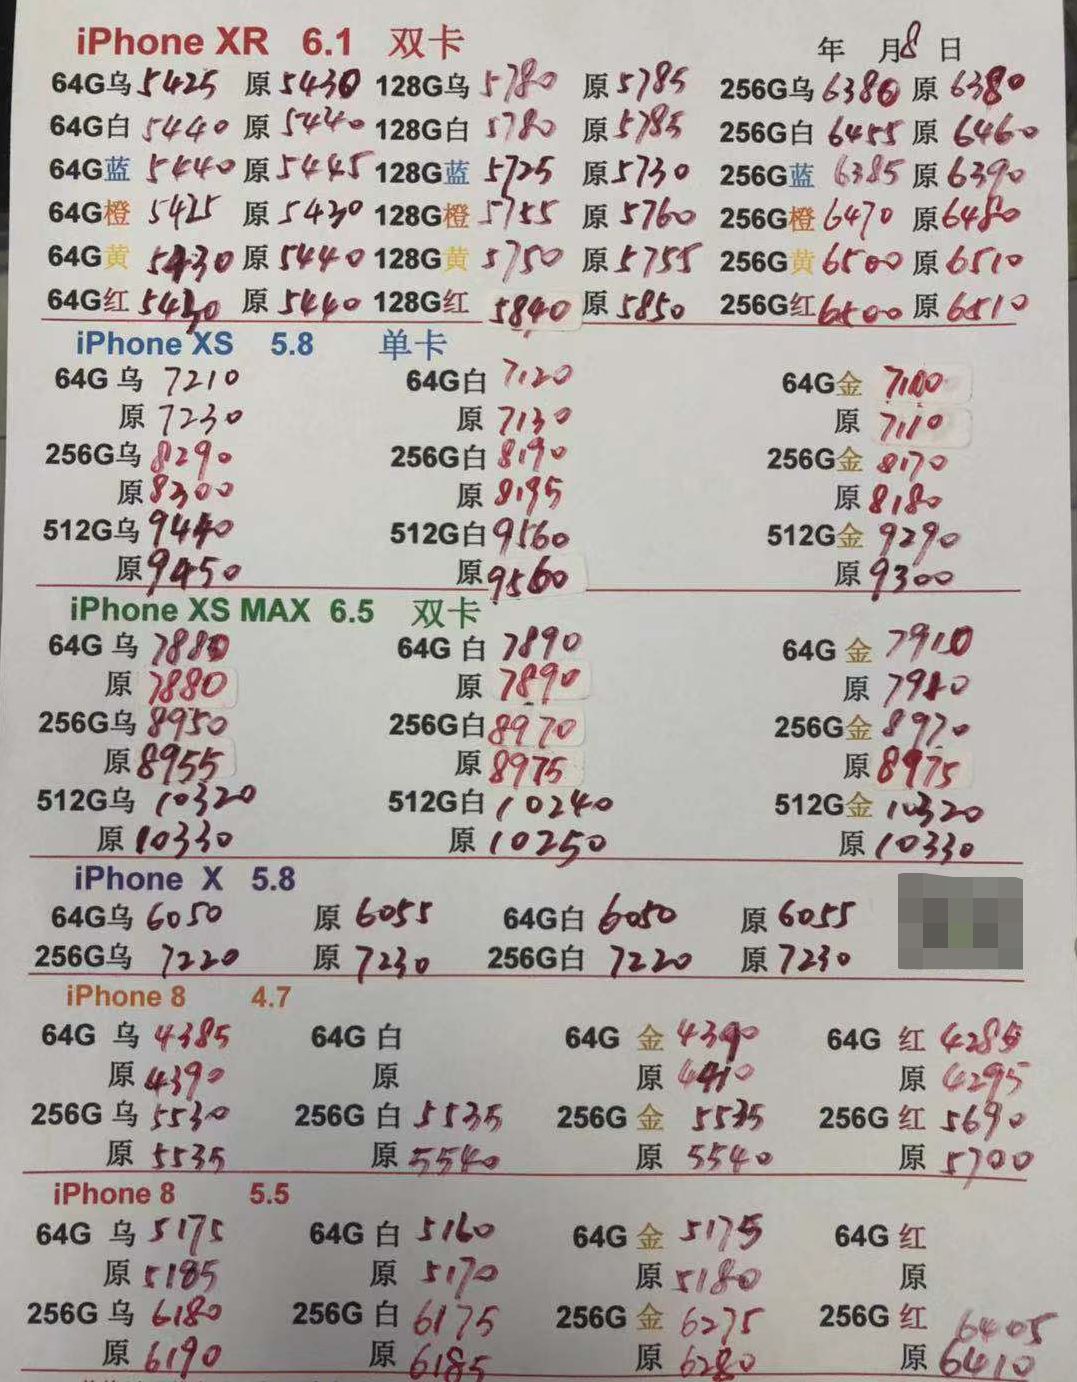 iPhone XR 6.1 双卡 年 月8日
64G乌 5425 原 5430 128G乌 5780 原 5785 256G乌 6380 原 6380
64G白 5440 原 5440 128G白 5780 原 5785 256G白 6455 原 6460
64G蓝 5440 原 5445 128G蓝 5725 原 5730 256G蓝 6385 原 6390
64G橙 5425 原 5430 128G橙 5755 原 5760 256G橙 6470 原 6480
64G黄 5430 原 5440 128G黄 5750 原 5755 256G黄 6500 原 6510
64G红 5430 原 5440 128G红 5840 原 5850 256G红 6500 原 6510
iPhone XS 5.8 单卡
64G 乌 7210 64G白 7120 64G金 7100
原 7230 原 7130 原 7110
256G乌 8290 256G白 8190 256G金 8170
原 8300 原 8195 原 8180
512G乌 9440 512G白 9560 512G金 9290
原 9450 原 9560 原 9300
iPhone XS MAX 6.5 双卡
64G 乌 7880 64G 白 7890 64G 金 7910
原 7880 原 7890 原 7910
256G乌 8950 256G白 8970 256G金 8970
原 8955 原 8975 原 8975
512G乌 10320 512G白 10240 512G金 10320
原 10330 原 10250 原 10330
iPhone X 5.8
64G乌 6050 原 6055 64G白 6050 原 6055
256G乌 7220 原 7230 256G白 7220 原 7230
iPhone 8 4.7
64G 乌 4385 64G 白 64G 金 4390 64G 红 4285
原 4390 原 原 4410 原 4295
256G 乌 5530 256G 白 5535 256G 金 5535 256G 红 5690
原 5535 原 5540 原 5540 原 5700
iPhone 8 5.5
64G 乌 5175 64G 白 5160 64G 金 5175 64G 红
原 5185 原 5170 原 5180 原
256G 乌 6180 256G 白 6175 256G 金 6275 256G 红 6405
原 6190 原 6185 原 6280 原 6410